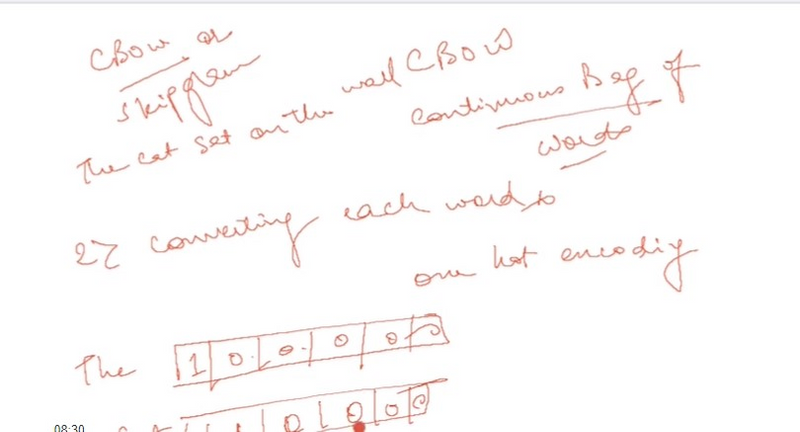 CBOW or
skipgram
The cat set on the wall CBOW
continuous Bag of
words
2) converting each word to
one hot encoding
The 1 0 0 0 0 0
0 0 0 0
08:30